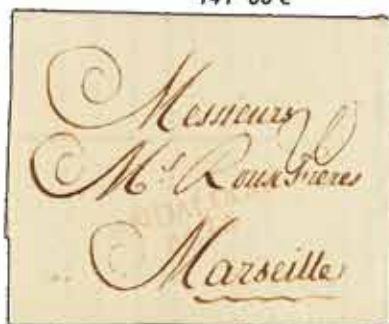 Messieurs
M.s Roux Freres
Marseille